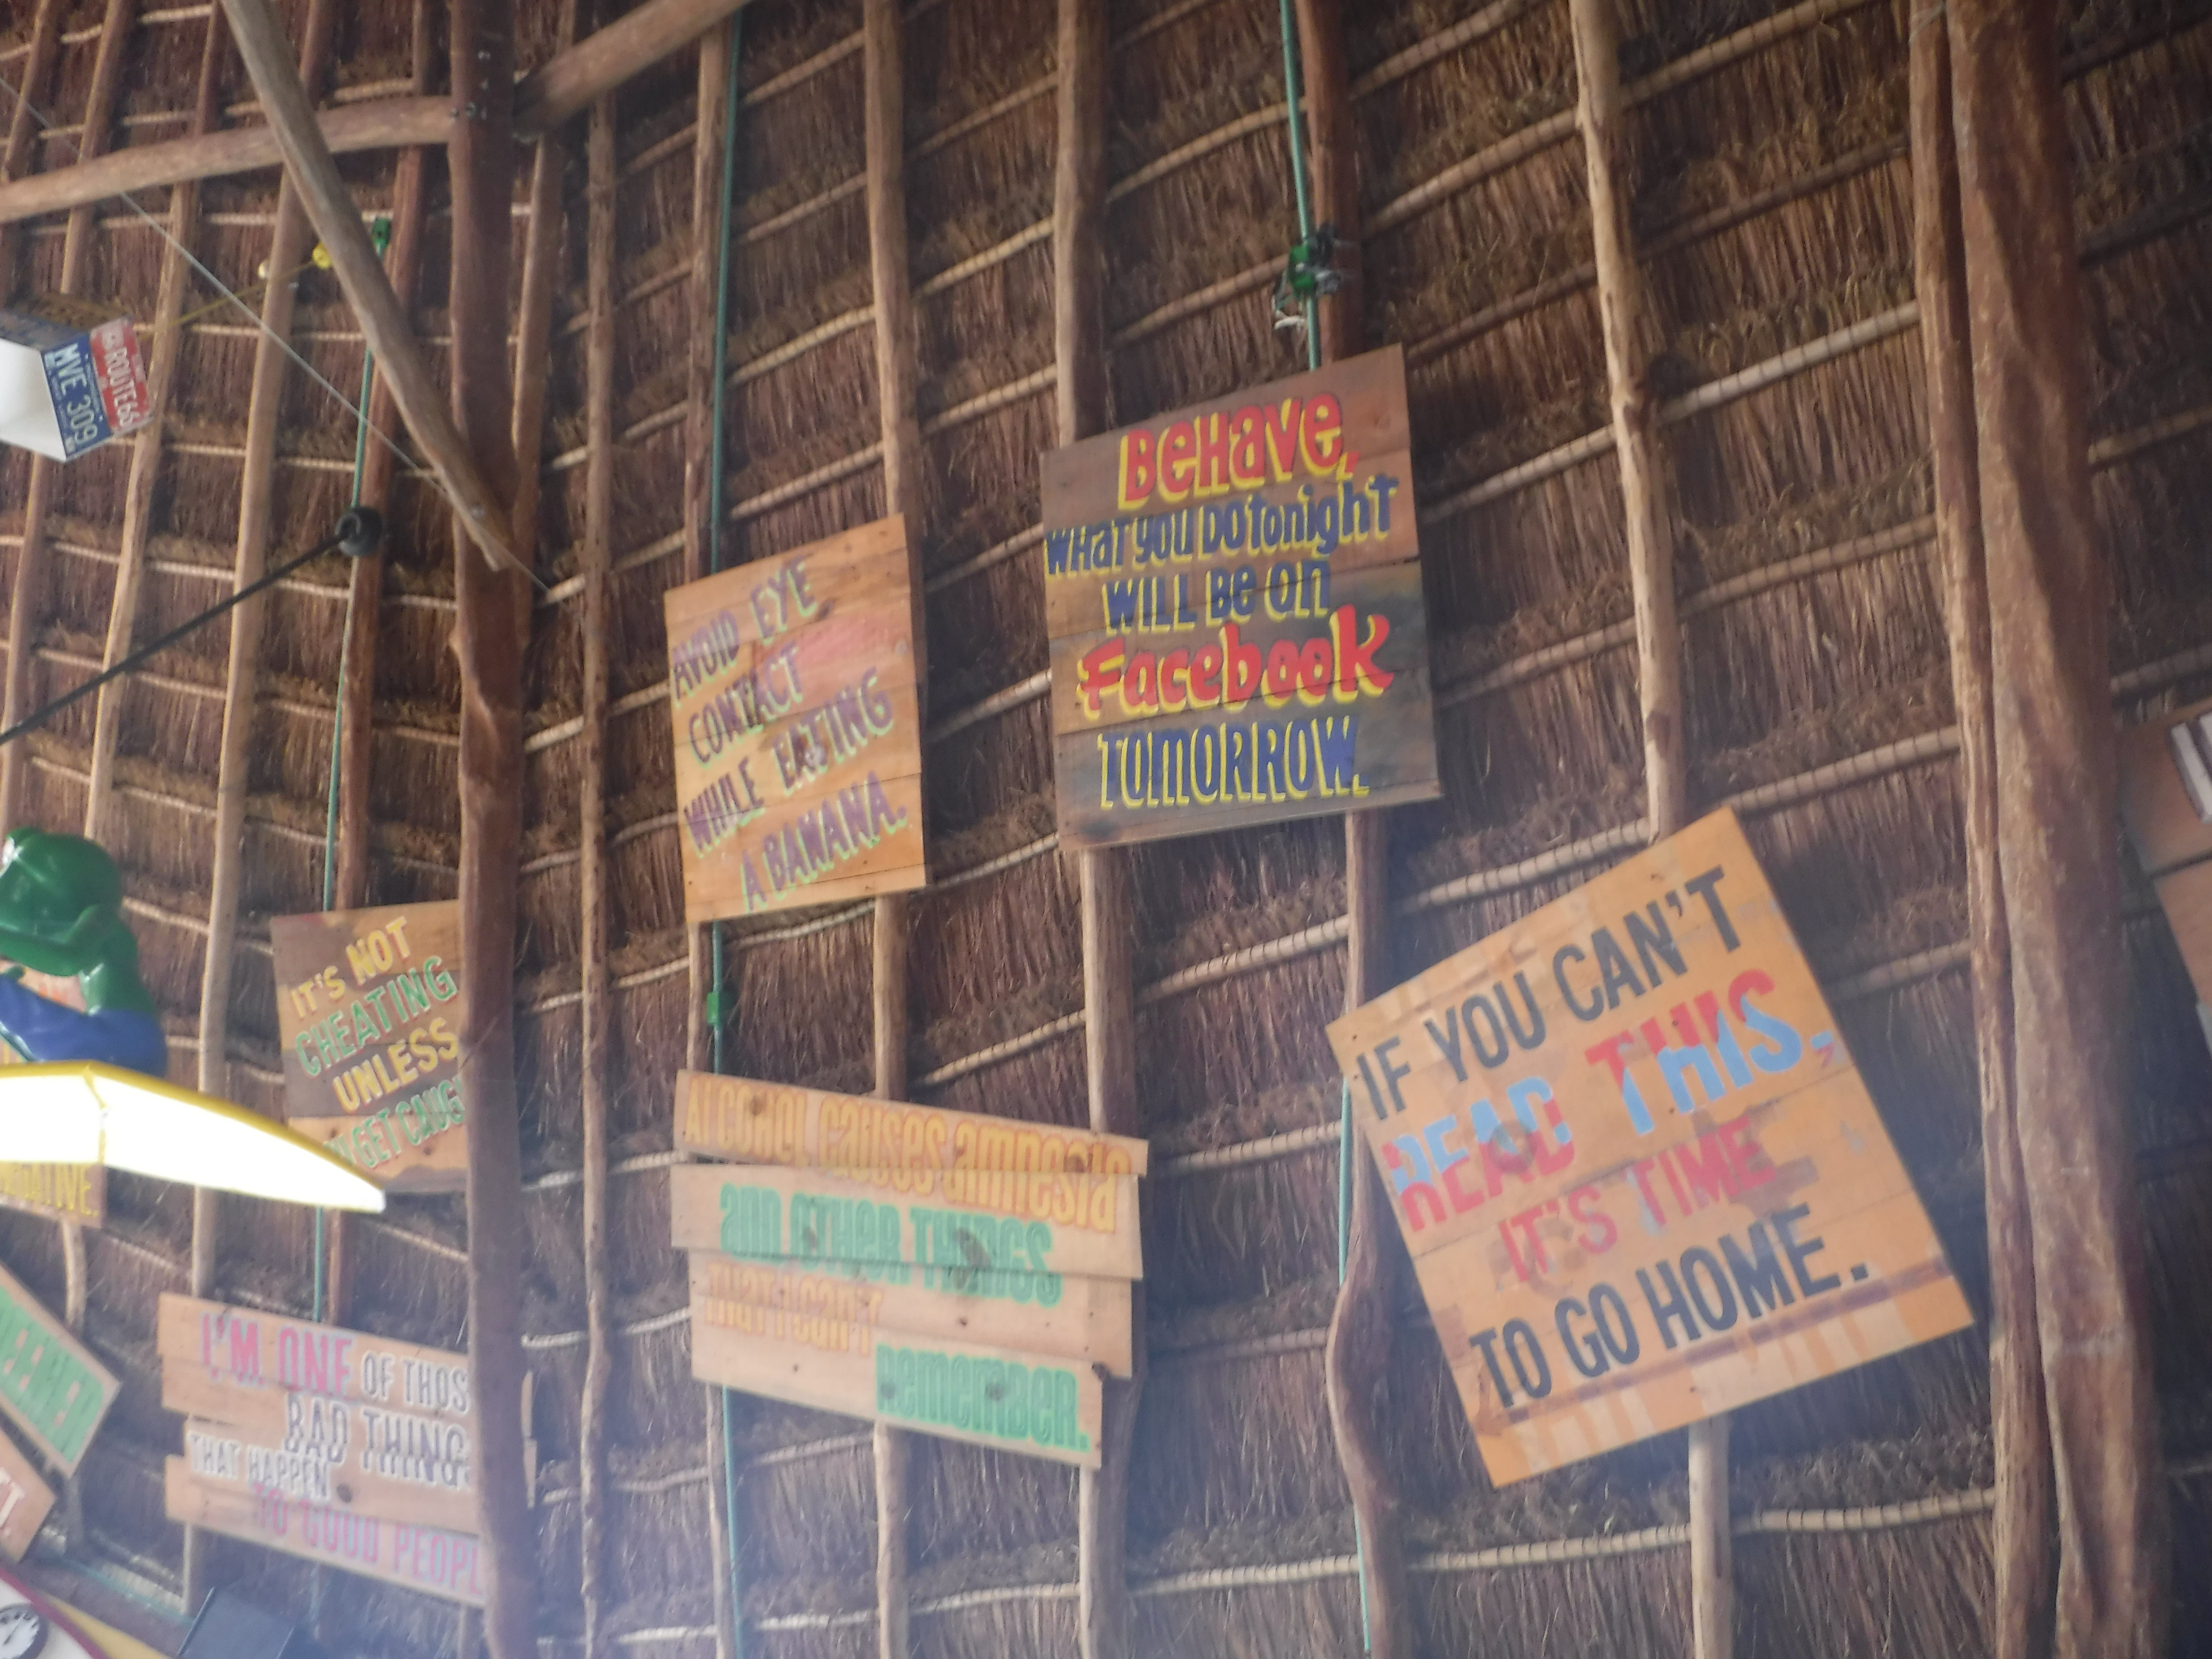 ROUTE66
MVE 309
BeHave,
WHat you Do tonight
WILL Be on
Facebook
TOMORROW.
AVOID EYE
CONTACT
WHILE EATING
A BANANA.
IT'S NOT
CHEATING
UNLESS
GET CAUG
IF YOU CAN'T
READ THIS.
IT'S TIME
TO GO HOME.
ALCOHOL causes amnesia
and OTHER THINGS
that I can't
Remember.
I'M ONE OF THOS
BAD THING
THAT HAPPEN
TO GOOD PEOPL